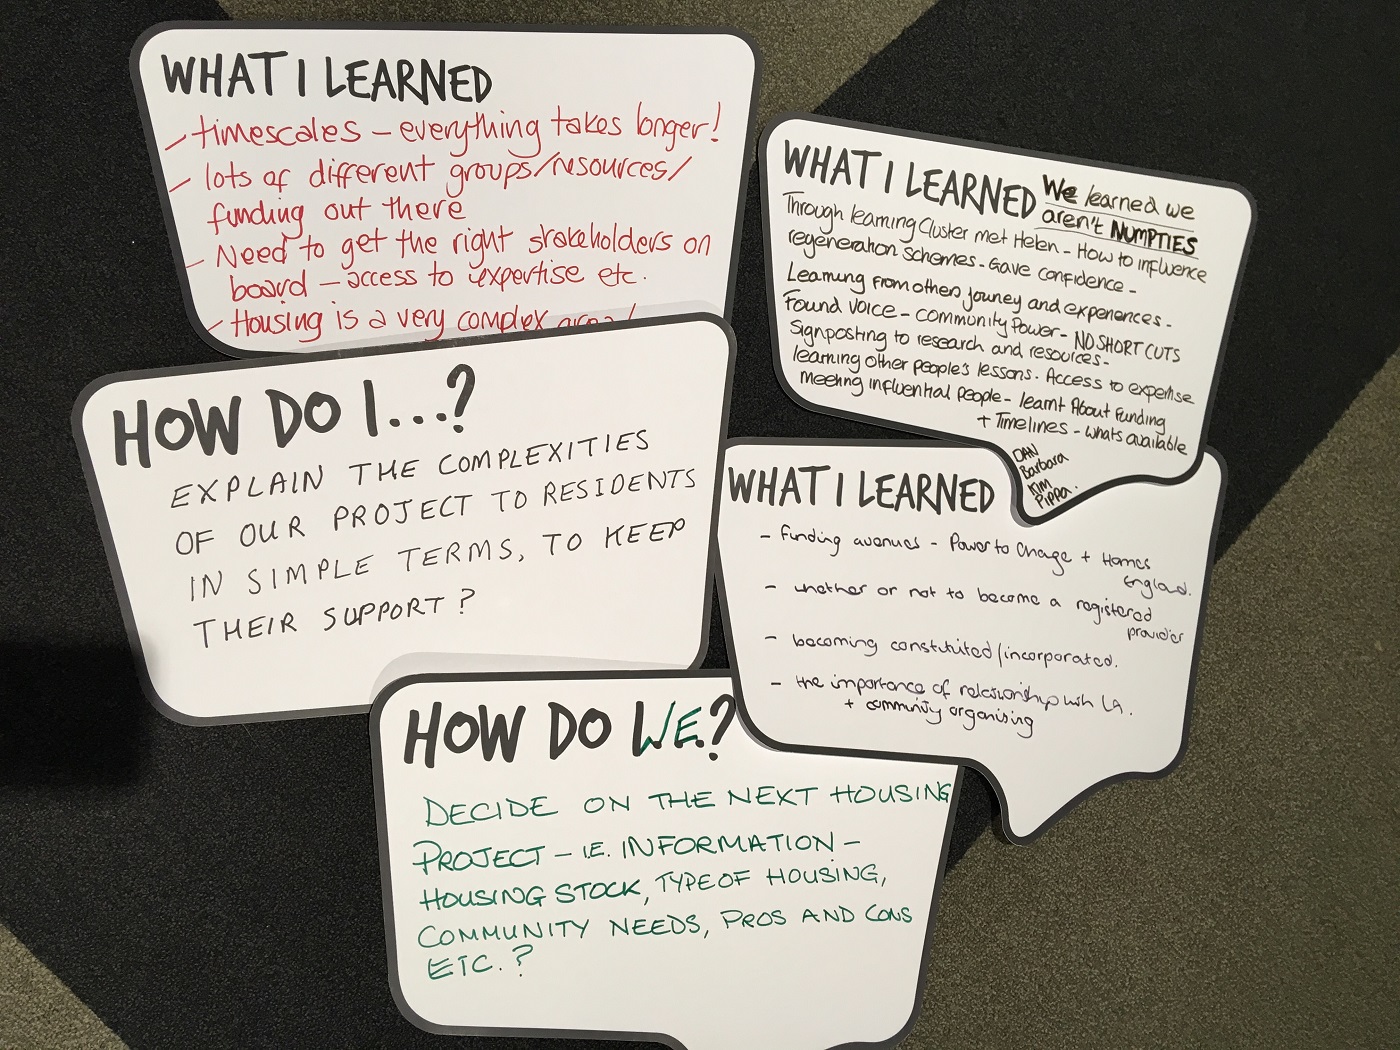 WHAT I LEARNED
- timescales - everything takes longer!
- lots of different groups/resources/
funding out there
- Need to get the right stakeholders on
board - access to expertise etc.
- Housing is a very complex area!
WHAT I LEARNED
We learned we
aren't NUMPTIES
Through learning Cluster met Helen - How to influence
regeneration schemes - Gave confidence -
Learning from others journey and experiences -
Found voice - community Power - NO SHORT CUTS
Signposting to research and resources -
learning other people's lessons. Access to expertise
Meeting influential people - learnt About Funding
+ Timelines - whats available
DAN
Barbara
Kim
Pippa.
HOW DO I...?
EXPLAIN THE COMPLEXITIES
OF OUR PROJECT TO RESIDENTS
IN SIMPLE TERMS, TO KEEP
THEIR SUPPORT?
WHAT I LEARNED
- funding avenues - Power to Change + Homes
England.
- whether or not to become a registered
provider
- becoming constituted/incorporated.
- the importance of relationship with LA.
+ community organising
HOW DO WE?
DECIDE ON THE NEXT HOUSING
PROJECT - I.E. INFORMATION -
HOUSING STOCK, TYPE OF HOUSING,
COMMUNITY NEEDS, PROS AND CONS
ETC.?